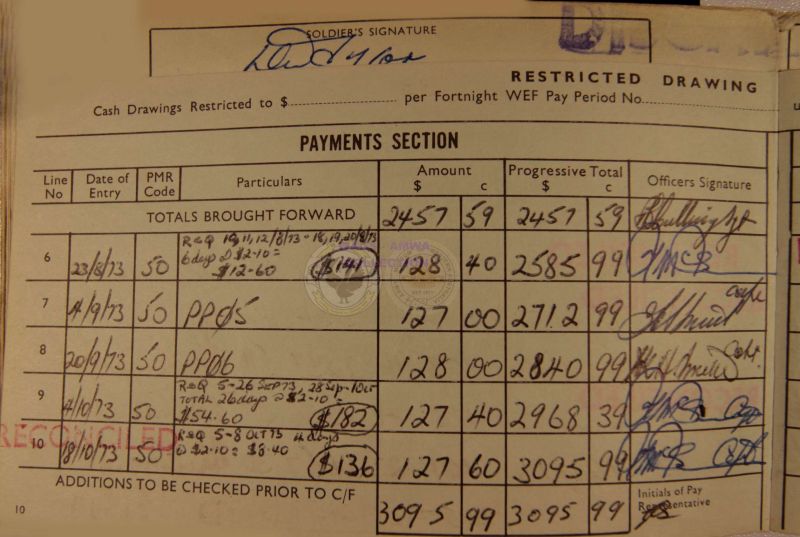 SOLDIER'S SIGNATURE
RESTRICTED DRAWING
Cash Drawings Restricted to $ per Fortnight WEF Pay Period No.
PAYMENTS SECTION
Line No Date of Entry PMR Code Particulars Amount $ c Progressive Total $ c Officers Signature
TOTALS BROUGHT FORWARD 2457 59 2457 59
R&Q 10, 11, 12/8/73 - 18, 19, 20/8/73
6 23/8/73 50 6 days @ $2-10 = $141 128 40 2585 99
$12-60
7 4/9/73 50 PP05 127 00 2712 99
8 20/9/73 50 PP06 128 00 2840 99
R&Q 5-26 SEP 73, 28 Sep-1 Oct
9 4/10/73 50 TOTAL 26 days @ $2-10 = 127 40 2968 39
$54-60 $182
RECONCILED
R&Q 5-8 OCT 73 4 days
10 18/10/73 50 @ $2-10 = $8-40 $136 127 60 3095 99
ADDITIONS TO BE CHECKED PRIOR TO C/F 3095 99 3095 99 Initials of Pay Representative
10